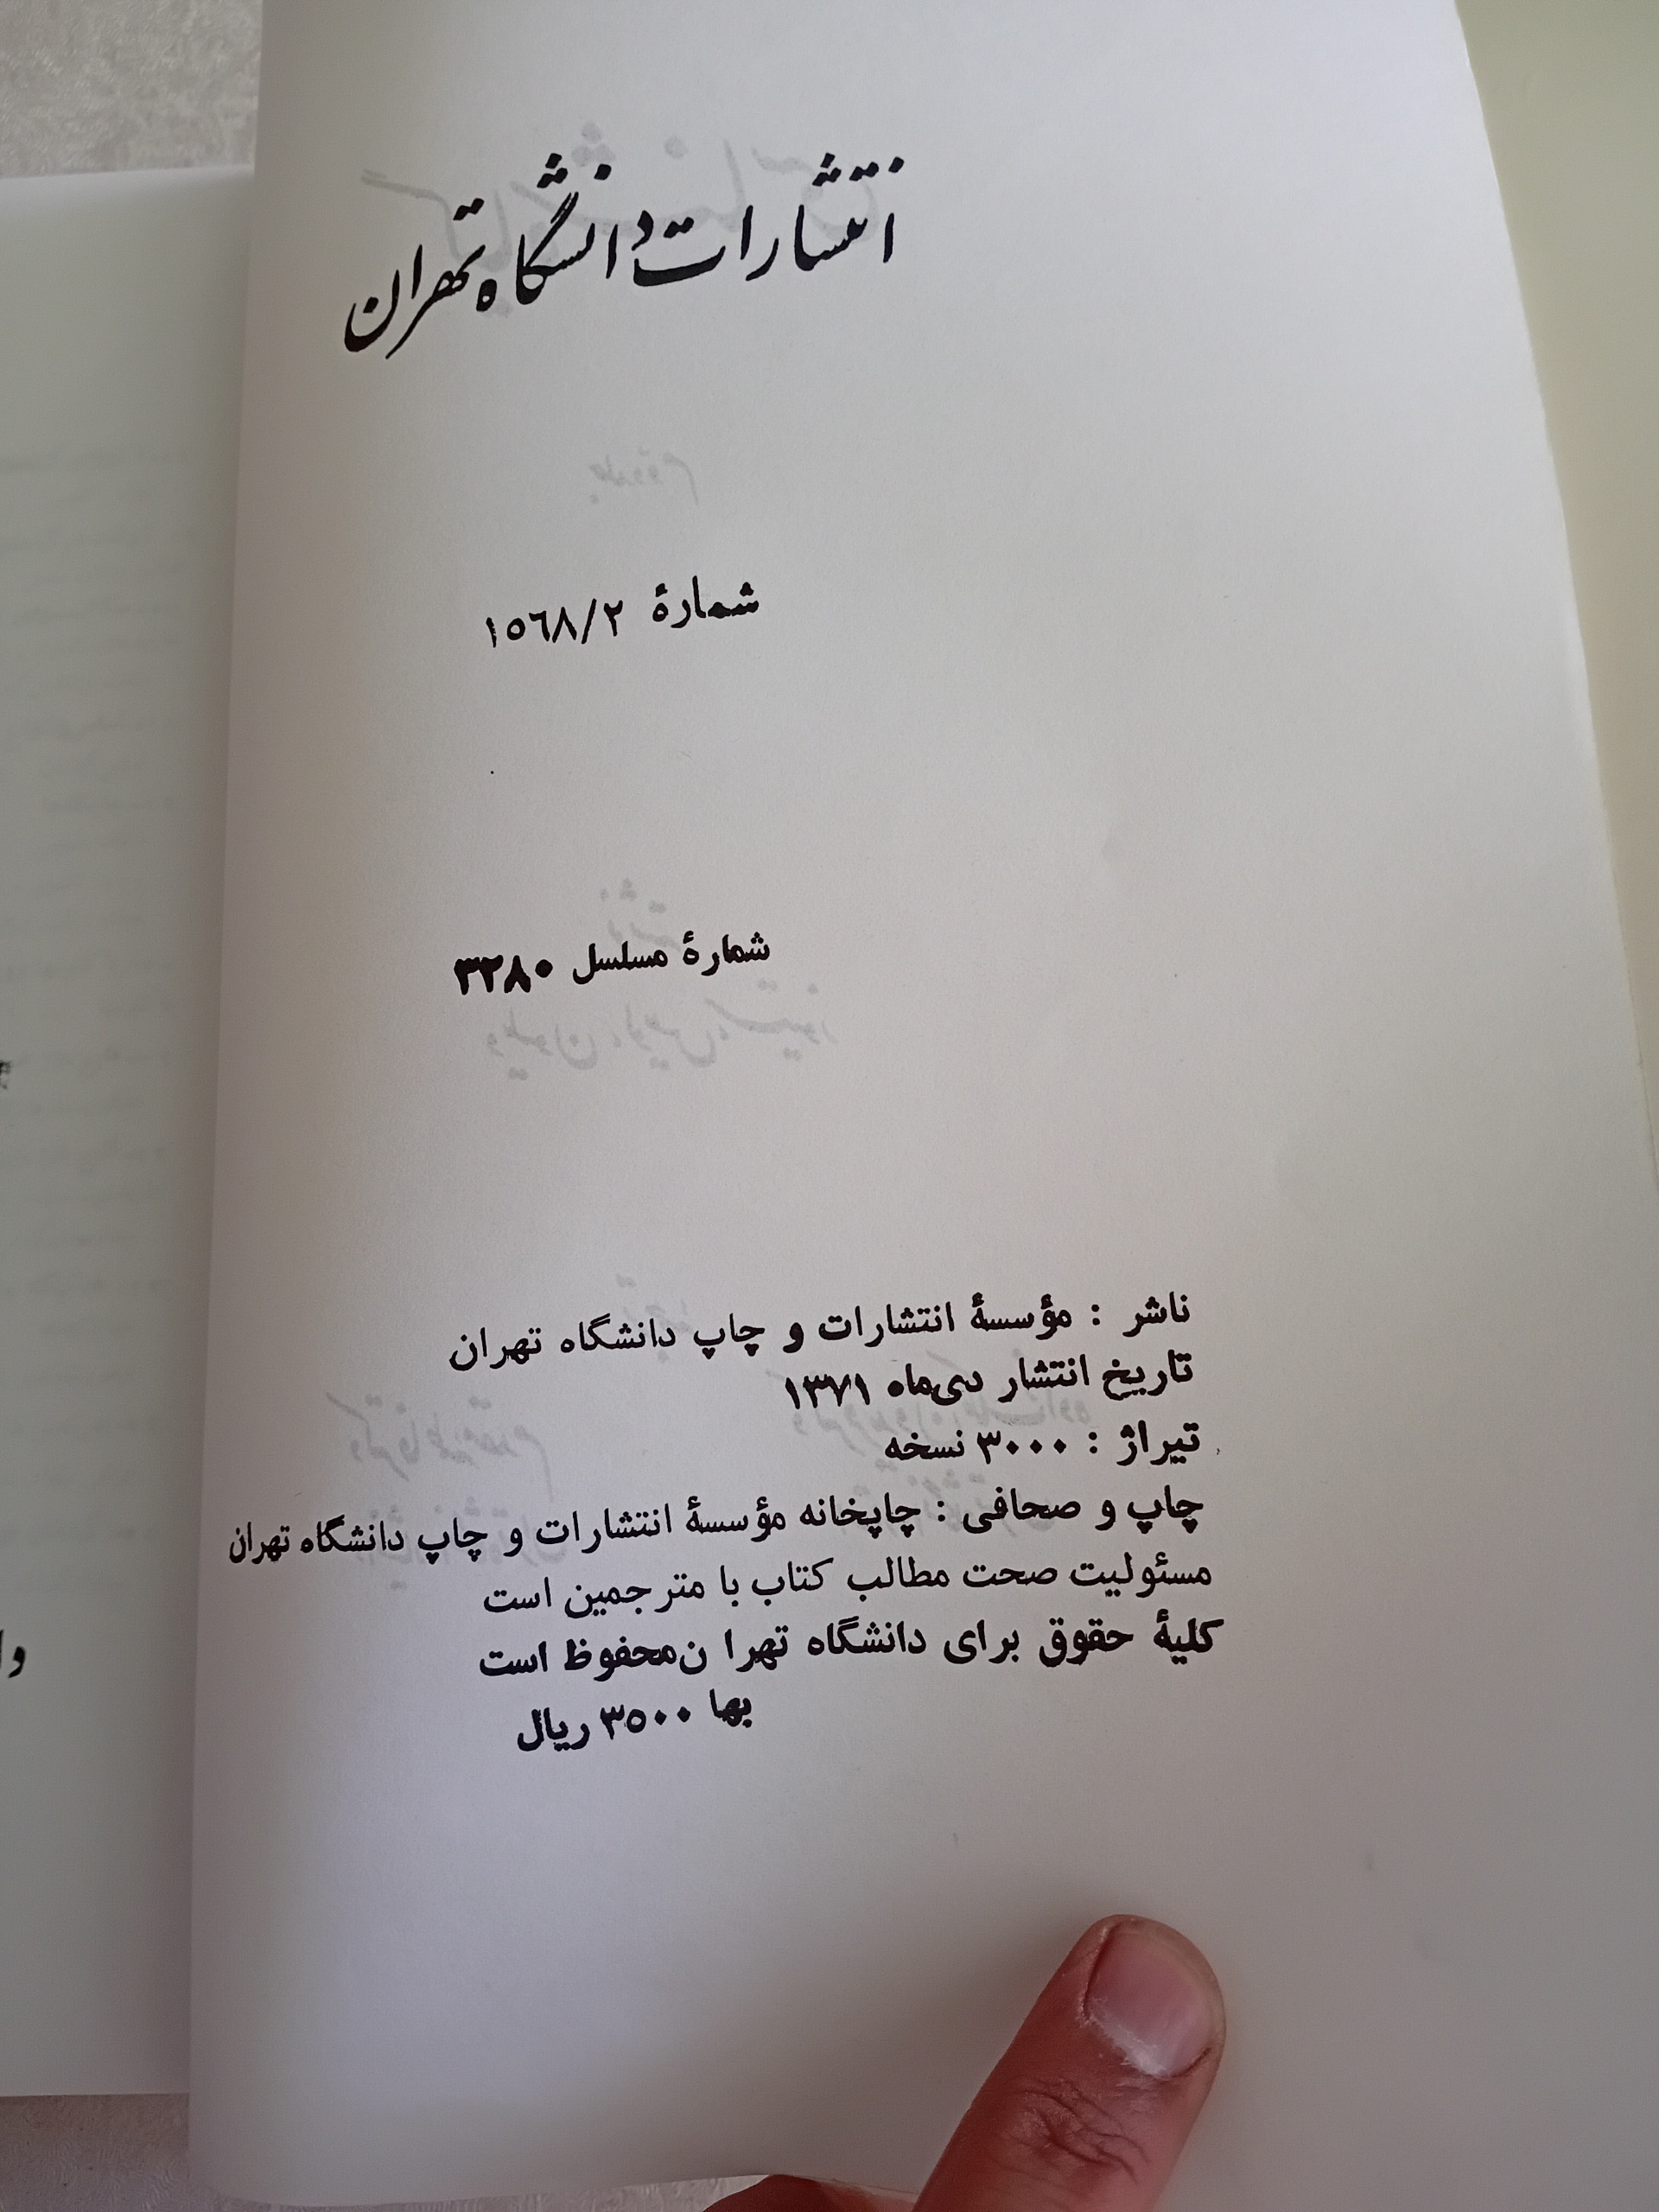 انتشارات دانشگاه تهران
شمارهٔ ۱۵۶۸/۲
شمارهٔ مسلسل ۳۲۸۰
ناشر : مؤسسهٔ انتشارات و چاپ دانشگاه تهران
تاریخ انتشار دی‌ماه ۱۳۷۱
تیراژ : ۳۰۰۰ نسخه
چاپ و صحافی : چاپخانه مؤسسهٔ انتشارات و چاپ دانشگاه تهران
مسئولیت صحت مطالب کتاب با مترجمین است
کلیهٔ حقوق برای دانشگاه تهرا ن‌محفوظ است
بها ۳۵۰۰ ریال